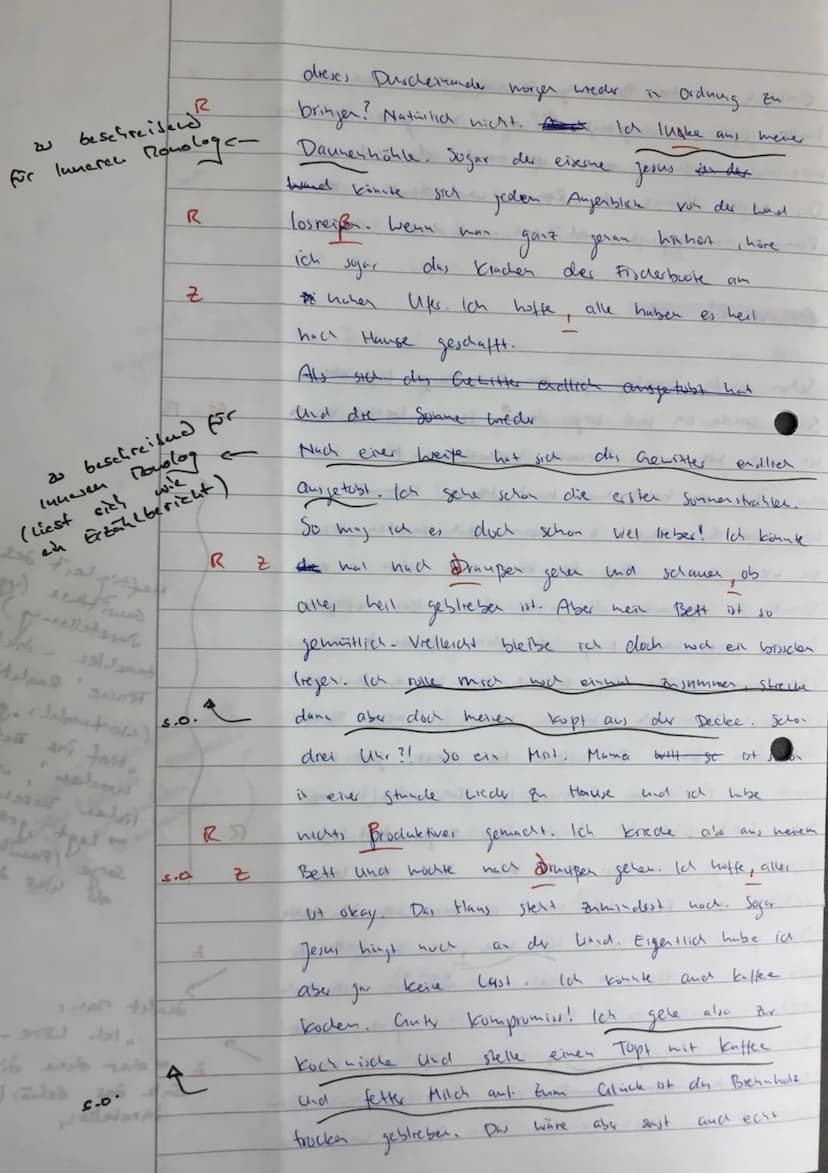 dieses Durcheinander morgen wieder in Ordnung zu
R
bringen? Natürlich nicht. Ich luske aus meiner
zu beschreibend
für Inneren Monolog ←
Daunenhöhle. Sogar der eiserne Jesus in der
Wand könnte sich jeden Augenblick von der Wand
R
losreißen. Wenn man ganz genau hinhört, höre
ich sogar das Krachen der Fischerboote am
Z
nahen Ufer. Ich hoffe, alle haben es heil
nach Hause geschafft.
Als sich das Gewitter endlich ausgetobt hat
und die Sonne wieder
zu beschreibend für
inneren Monolog ←
(liest sich wie
ein Erzählbericht)
Nach einer Weile hat sich das Gewitter endlich
ausgetobt. Ich sehe schon die ersten Sonnenstrahlen.
So mag ich es doch schon viel lieber! Ich könnte
R Z
mal nach Draußen gehen und schauen, ob
alles heil geblieben ist. Aber mein Bett ist so
gemütlich. Vielleicht bleibe ich doch noch ein bisschen
liegen. Ich rolle mich noch einmal zusammen, strecke
s.o.
dann aber doch meinen Kopf aus der Decke. Schon
drei Uhr?! So ein Mist. Mama ist schon
in einer Stunde wieder zu Hause und ich habe
R
nichts Produktives gemacht. Ich krieche also aus meinem
s.o Z
Bett und möchte nach Draußen gehen. Ich hoffe, alles
ist okay. Das Haus steht zumindest noch. Sogar
Jesus hängt noch an der Wand. Eigentlich habe ich
aber gar keine Lust. Ich könnte auch Kaffee
kochen. Guter Kompromiss! Ich gehe also zur
Kochnische und stelle einen Topf mit Kaffee
s.o.
und fetter Milch auf. Zum Glück ist das Brennholz
trocken geblieben. Das wäre aber sonst auch echt